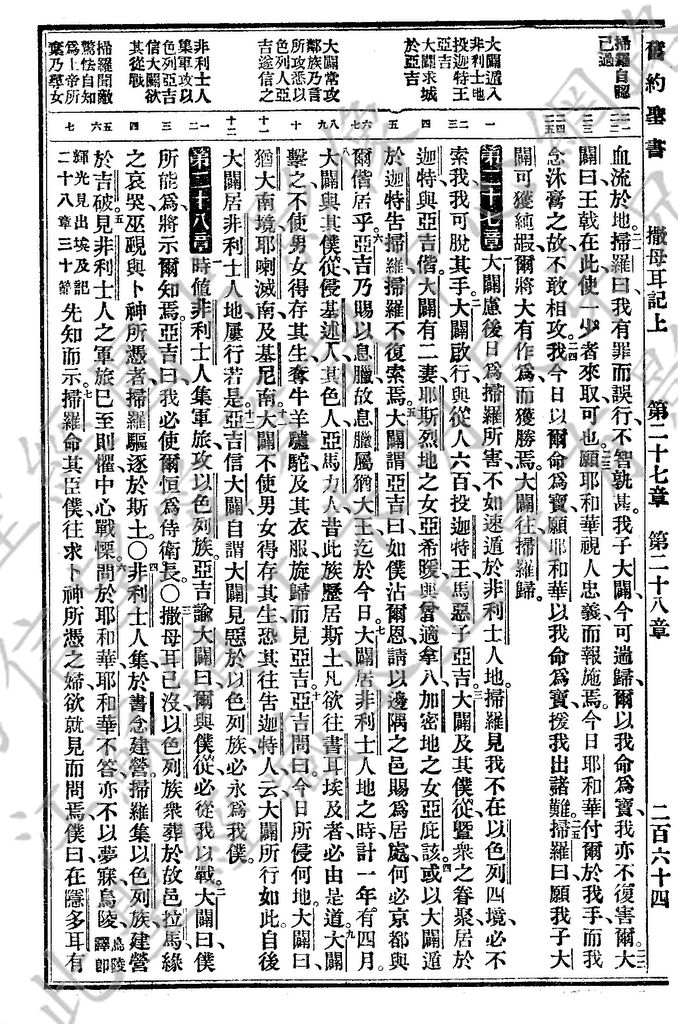 舊約聖書 撒母耳記上 第二十七章 第二十八章 二百六十四
掃羅自認
已過
大闢遁入
非利士地
投迦特王
亞吉
大闢求城
於亞吉
大闢常攻
鄰族乃言
所攻悉以
色列人亞
吉遂信之
非利士人
集軍攻以
色列亞吉
信大闢欲
其從戰
掃羅聞敵
驚怯自知
爲上帝所
棄乃學女
血流於地掃羅曰我有罪而誤行不智孰甚我子大闢今可遄歸爾以我命爲寶我亦不復害爾大
闢曰王戟在此使一少者來取可也願耶和華視人忠義而報施焉今日耶和華付爾於我手而我
念沐膏之故不敢相攻我今日以爾命爲寶願耶和華以我命爲寶援我出諸難掃羅曰願我子大
闢可獲純嘏爾將大有作爲而獲勝焉大闢往掃羅歸
第二十七章 大闢慮後日爲掃羅所害不如速遁於非利士人地掃羅見我不在以色列四境必不
索我我可脫其手大闢啟行與從人六百投迦特王馬惡子亞吉大闢及其僕從暨衆之眷聚居於
迦特與亞吉偕大闢有二妻耶斯烈地之女亞希暖與曾適拿八加密地之女亞庇該或以大闢遁
於迦特告掃羅掃羅不復索焉大闢謂亞吉曰如僕沾爾恩請以邊隅之邑賜爲居處何必京都與
爾偕居乎亞吉乃賜以息臘故息臘屬猶大王迄於今日大闢居非利士人地之時計一年有四月
大闢與其僕從侵基述人其色人亞馬力人昔此族歷居斯土凡欲往書耳埃及者必由是道大闢
擊之不使男女得存其生奪牛羊驢駝及其衣服旋歸而見亞吉亞吉問曰今日所侵何地大闢曰
猶大南境耶喇滅南及基尼南大闢不使男女得存其生恐其往告迦特人云大闢所行如此自後
大闢居非利士人地屢行若是亞吉信大闢自謂大闢見惡於以色列族必永爲我僕
第二十八章 時値非利士人集軍旅攻以色列族亞吉諭大闢曰爾與僕從必從我以戰大闢曰僕
所能爲將示爾知焉亞吉曰我必使爾恒爲侍衛長○撒母耳已沒以色列族衆葬於故邑拉馬緣
之哀哭巫覡與卜神所憑者掃羅驅逐於斯土○非利士人集於書念建營掃羅集以色列族建營
於吉破見非利士人之軍旅已至則懼中心戰慄問於耶和華耶和華不答亦不以夢寐烏陵烏陵譯卽
輝光見出埃及記二十八章三十節先知而示掃羅命其臣僕往求卜神所憑之婦欲就見而問焉僕曰在隱多耳有